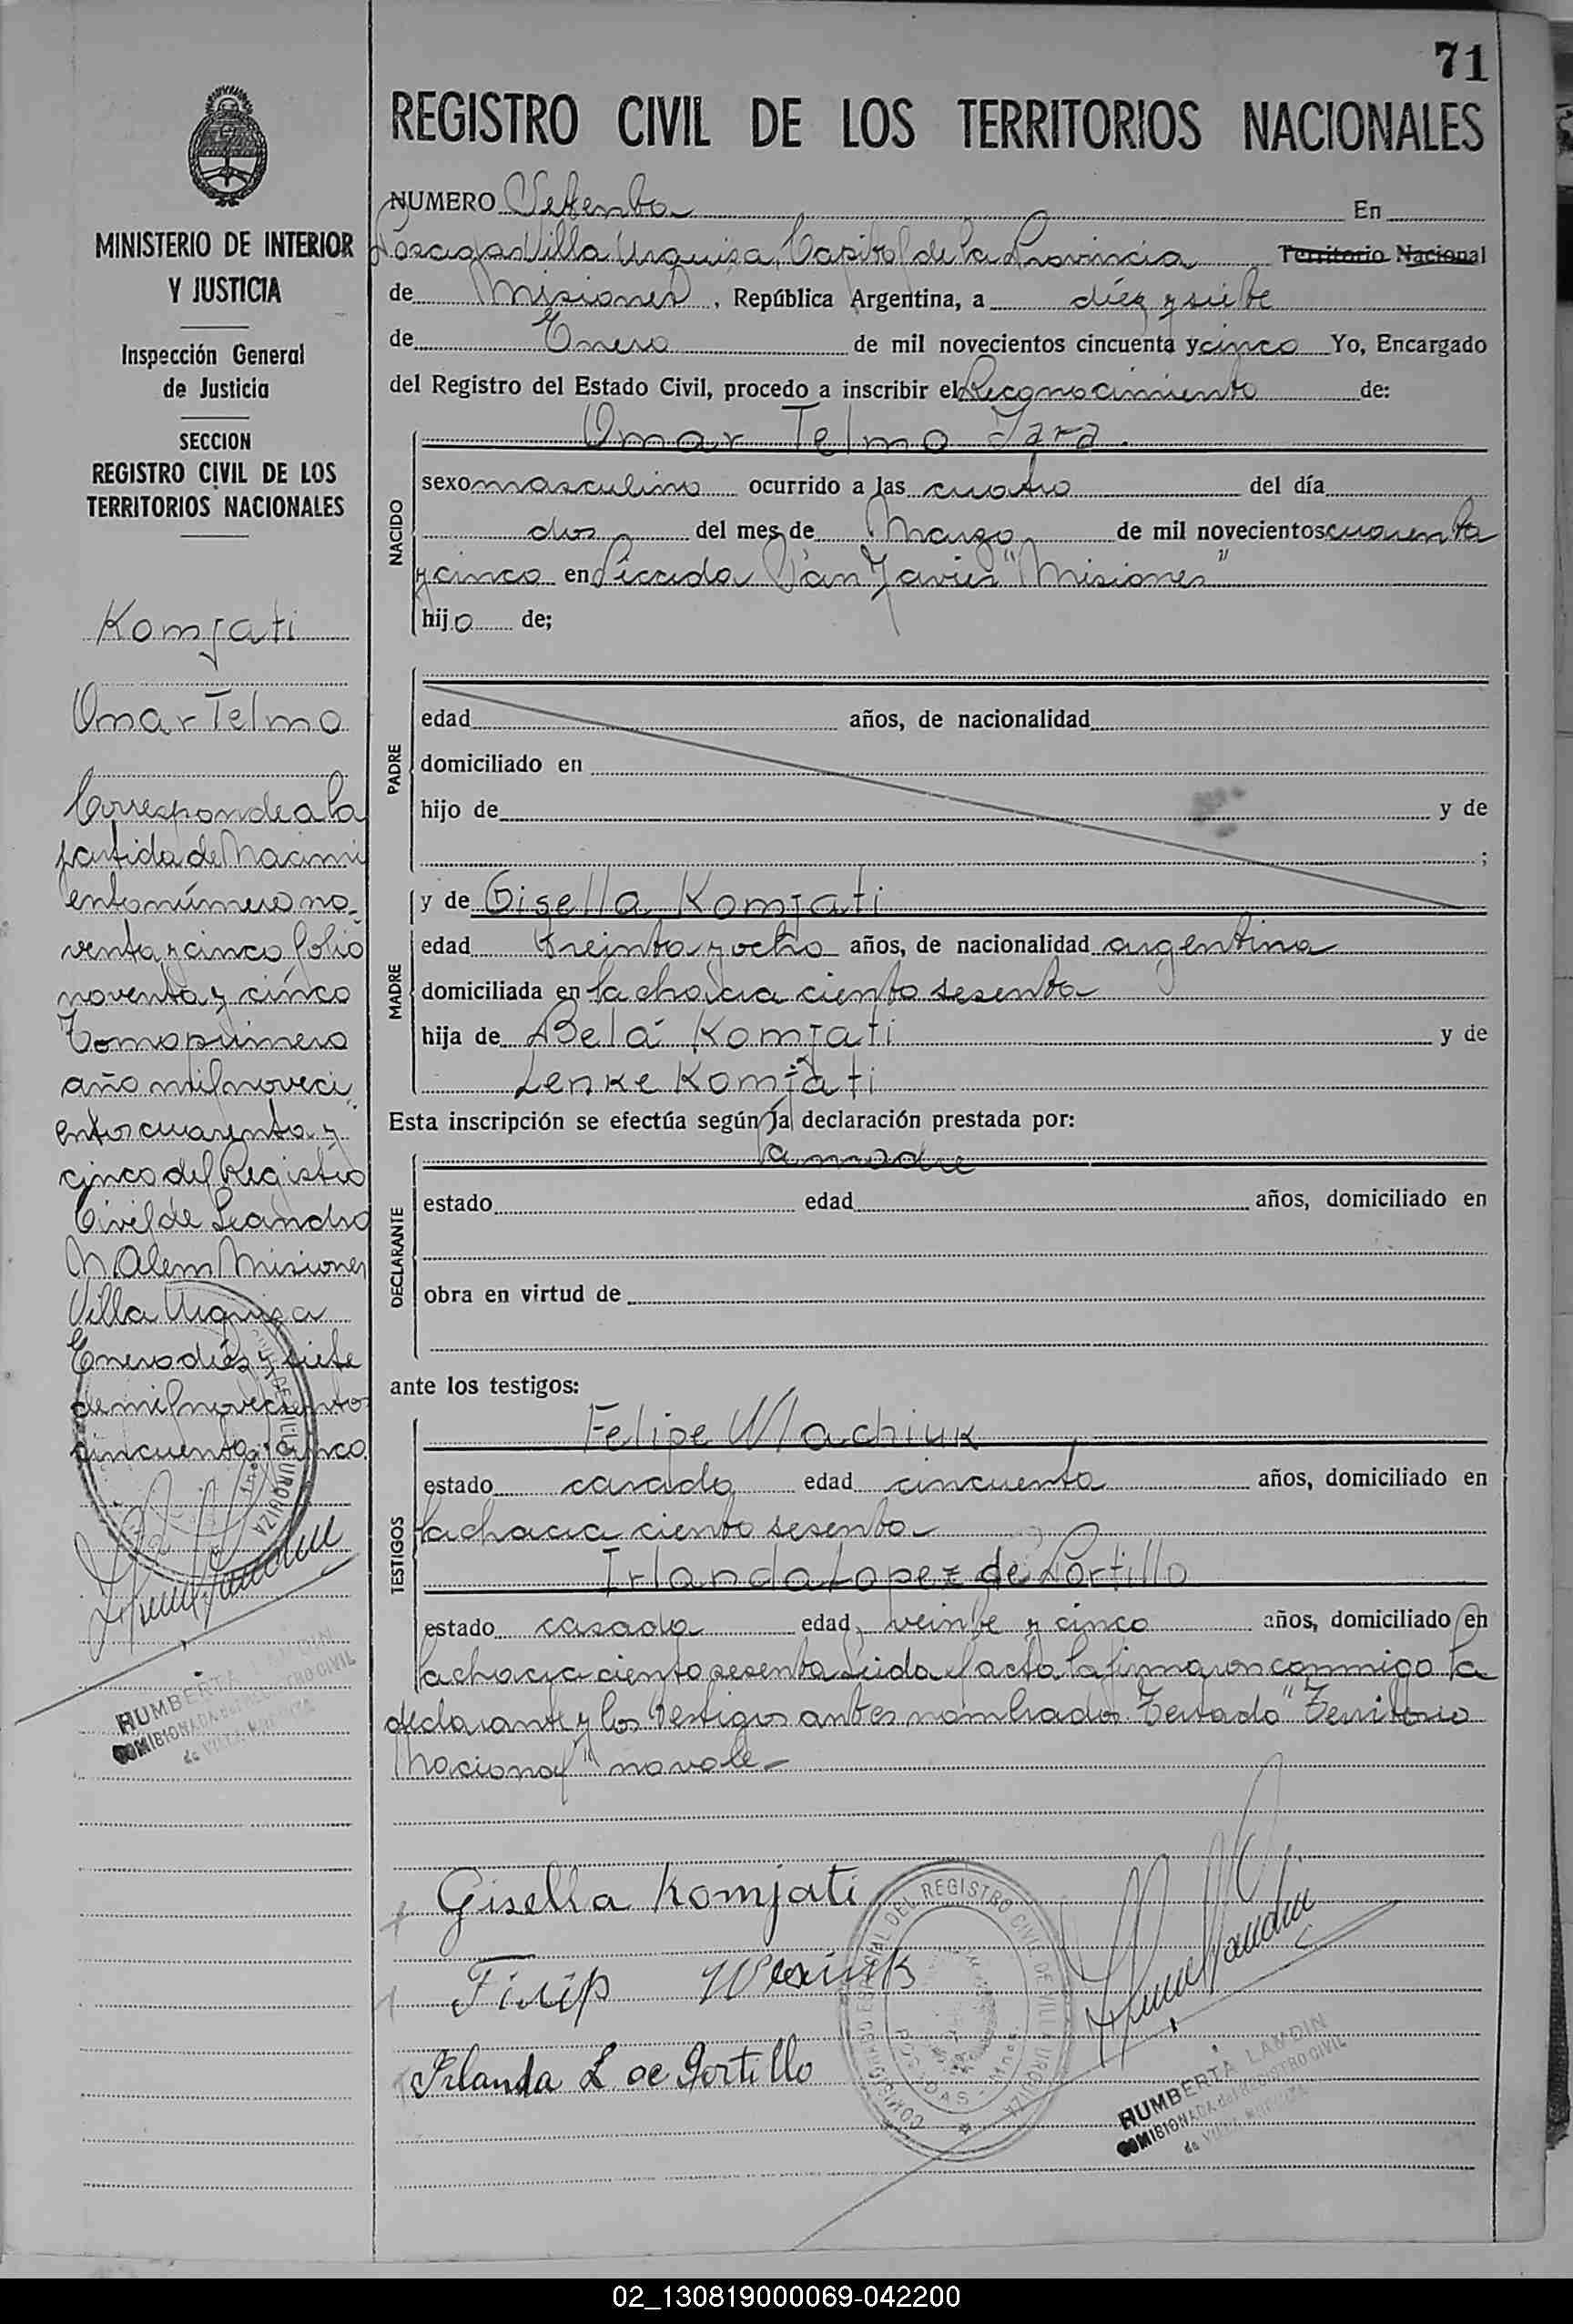 71
REGISTRO CIVIL DE LOS TERRITORIOS NACIONALES
MINISTERIO DE INTERIOR
Y JUSTICIA
Inspección General
de Justicia
SECCION
REGISTRO CIVIL DE LOS
TERRITORIOS NACIONALES
Komjati
Omar Telmo
Corresponde a la
partida de Nacimi
ento número no-
venta y cinco folio
noventa y cinco
Tomo primero
año mil noveci
entos cuarenta y
cinco del Registro
Civil de Leandro
N Alem Misiones
Villa Urquiza
Enero diés y siete
de mil novecientos
cincuenta y cinco
HUMBERTA LANDIN
COMISIONADA del REGISTRO CIVIL
de VILLA URQUIZA
NUMERO Setenta En
Posadas Villa Urquiza, Capital de la Provincia Territorio Nacional
de Misiones, República Argentina, a diéz y siete
de Enero de mil novecientos cincuenta y cinco Yo, Encargado
del Registro del Estado Civil, procedo a inscribir el Reconocimiento de:
Omar Telmo Jara.
NACIDO
sexo masculino ocurrido a las cuatro del día
dos del mes de Marzo de mil novecientos cuarenta
y cinco en Picada San Javier "Misiones"
hijo de;
PADRE
edad años, de nacionalidad
domiciliado en
hijo de y de
;
MADRE
y de Gisella Komjati
edad treinta y ocho años, de nacionalidad argentina
domiciliada en la chacra ciento sesenta
hija de Abela Komjati y de
Lenke Komjati
Esta inscripción se efectúa según la declaración prestada por:
la madre
DECLARANTE
estado edad años, domiciliado en
obra en virtud de
ante los testigos:
TESTIGOS
Felipe Wlachiuk
estado casado edad cincuenta años, domiciliado en
la chacra ciento sesenta
Irlanda Lopez de Portillo
estado casada edad veinte y cinco años, domiciliado en
la chacra ciento sesenta Leida el acta la firmaron conmigo la
declarante y los testigos antes nombrados. Testado "Territorio
Nacional" no vale-
Gisella Komjati
Filip
Irlanda L de Portillo
COMISIONADO ESPECIAL DEL REGISTRO CIVIL DE VILLA URQUIZA
POSADAS - Mnes.
HUMBERTA LANDIN
COMISIONADA del REGISTRO CIVIL
de VILLA URQUIZA
02_130819000069-042200